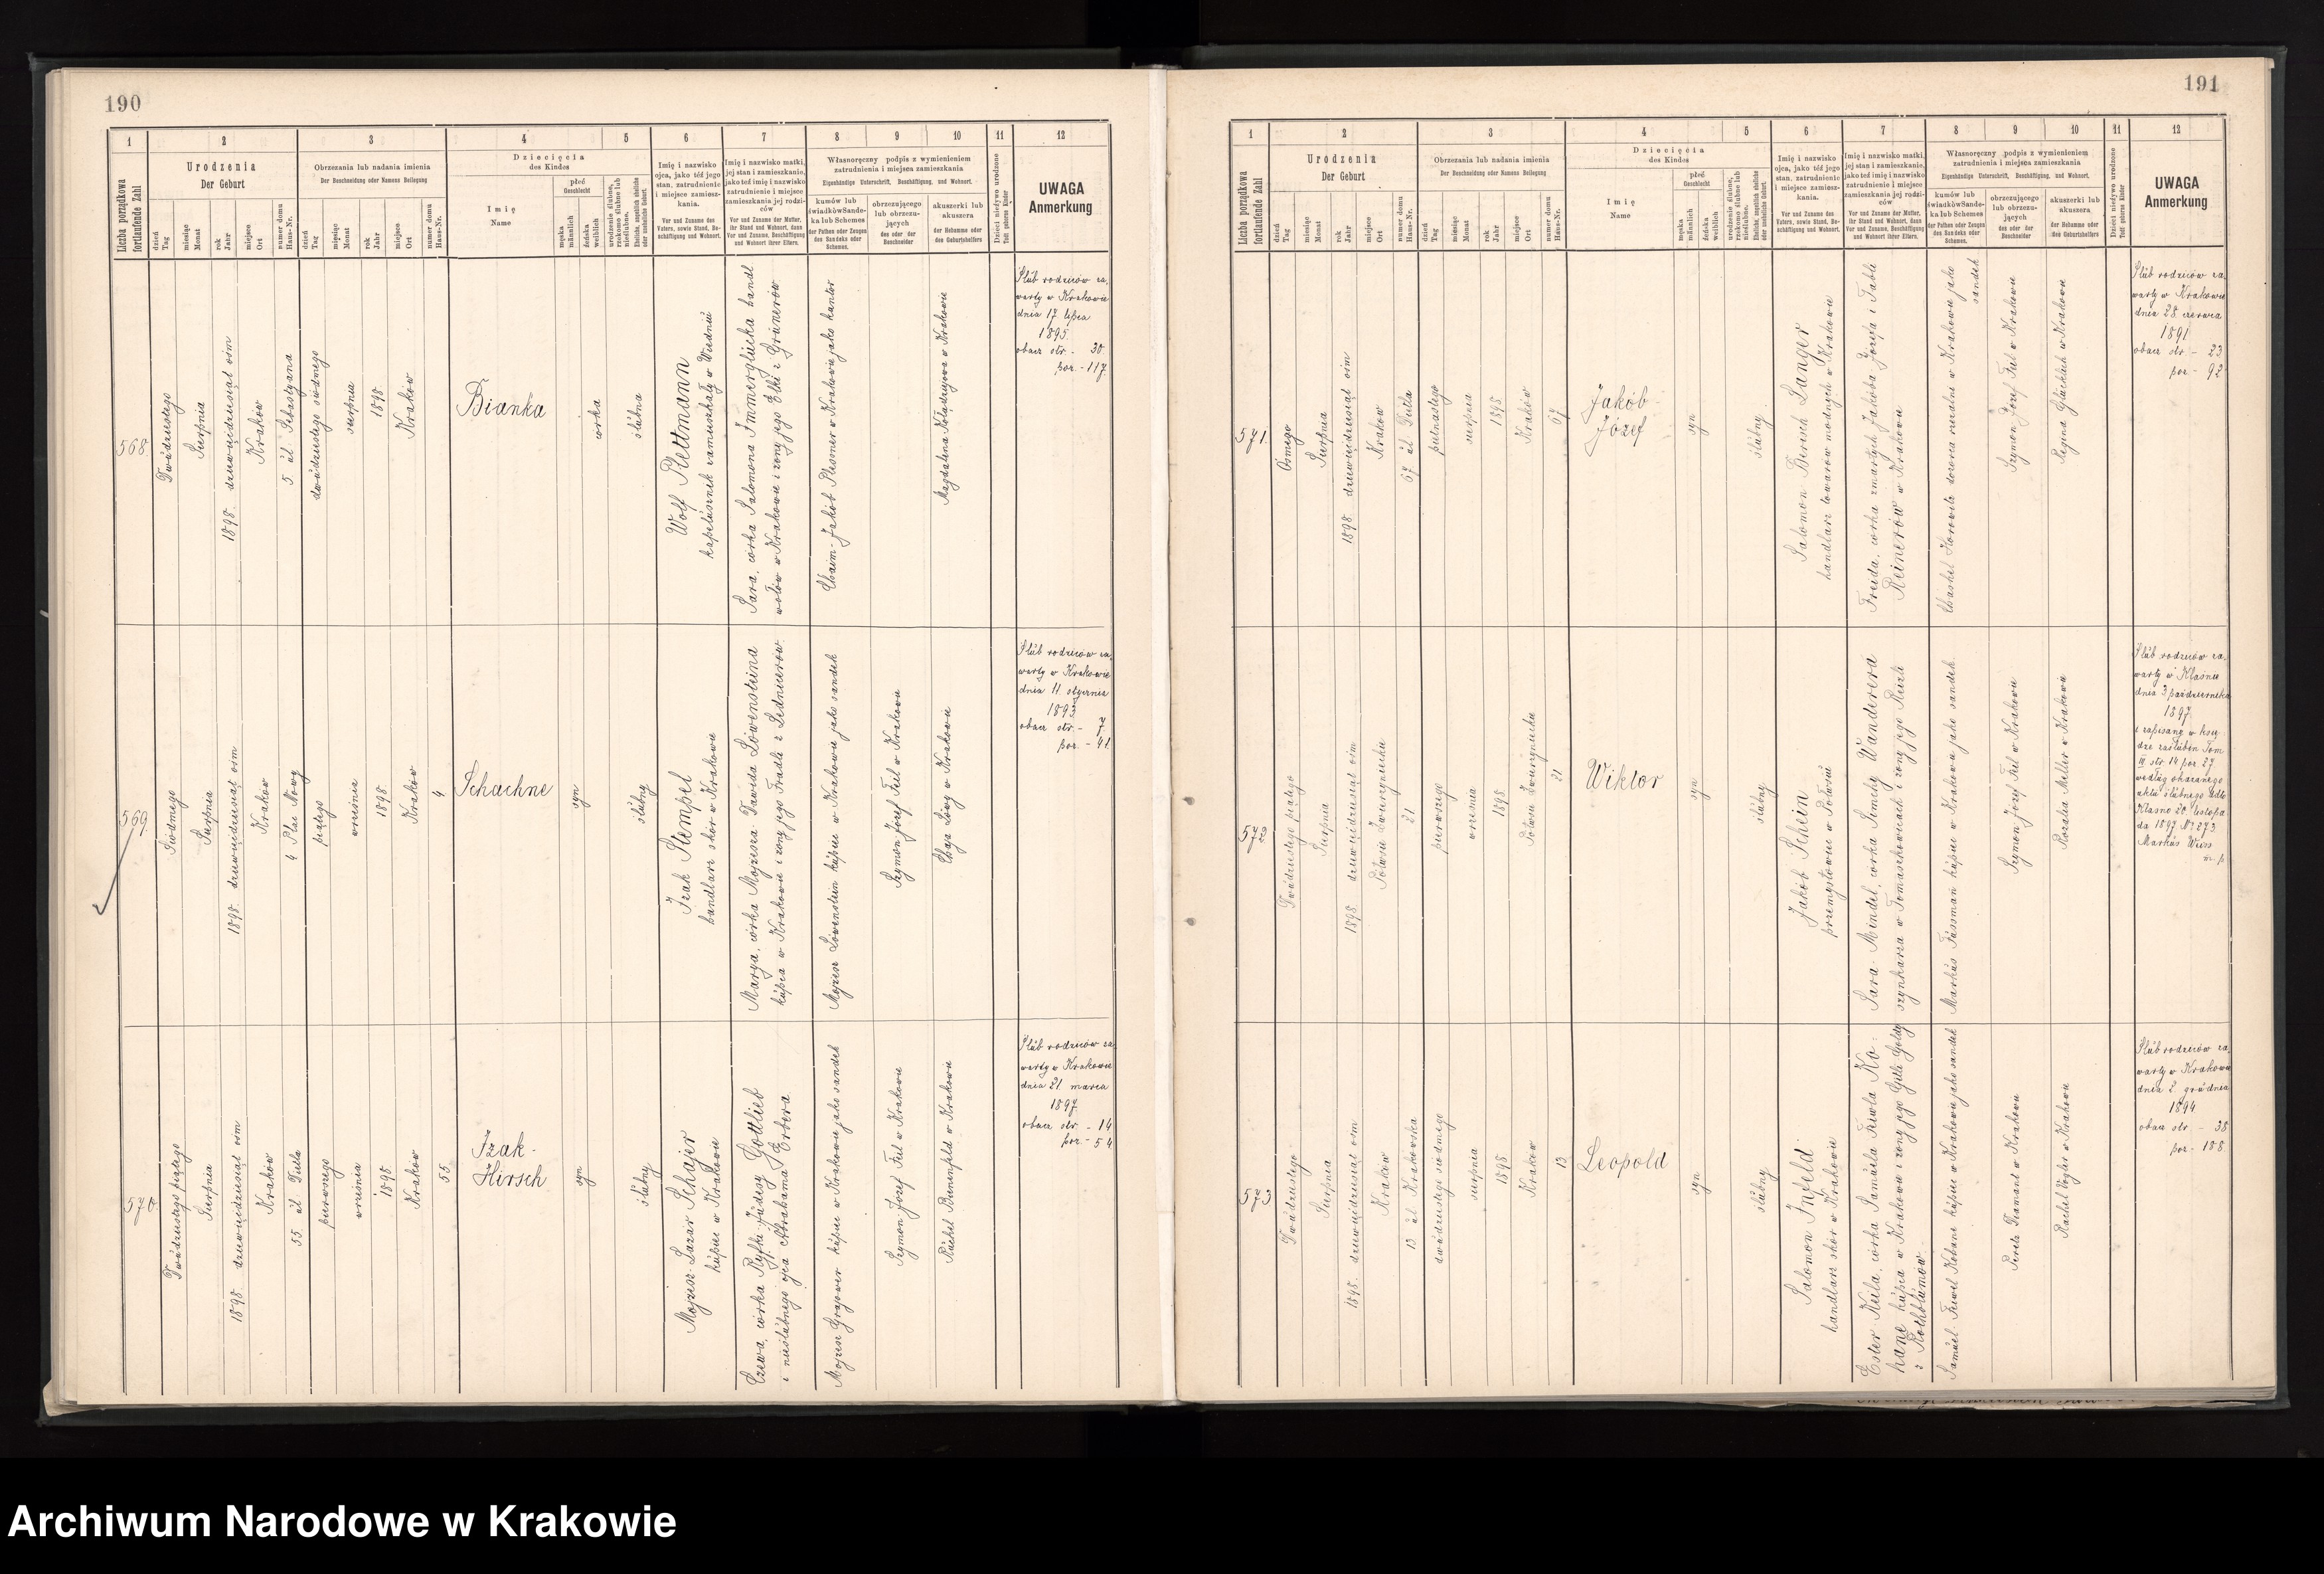 190
1
2
3
4
5
6
7
8
9
10
11
12
Liczba porządkowa
fortlaufende Zahl
Urodzenia
Der Geburt
dzień
Tag
miesiąc
Monat
rok
Jahr
miejsce
Ort
numer domu
Haus-Nr.
Obrzezania lub nadania imienia
Der Beschneidung oder Namens Beilegung
dzień
Tag
miesiąc
Monat
rok
Jahr
miejsce
Ort
numer domu
Haus-Nr.
Dziecięcia
des Kindes
Imię
Name
płeć
Geschlecht
męska
männlich
żeńska
weiblich
urodzenie ślubne,
rzekomo ślubne lub
nieślubne.
Eheliche, angeblich eheliche
oder uneheliche Geburt.
Imię i nazwisko
ojca, jako téż jego
stan, zatrudnienie
i miejsce zamiesz-
kania.
Vor und Zuname des
Vaters, sowie Stand, Be-
schäftigung und Wohnort.
Imię i nazwisko matki,
jej stan i zamieszkanie,
jako też imię i nazwisko
zatrudnienie i miejsce
zamieszkania jej rodzi-
ców
Vor und Zuname der Mutter,
ihr Stand und Wohnort, dann
Vor und Zuname, Beschäftigung
und Wohnort ihrer Eltern.
Własnoręczny podpis z wymienieniem
zatrudnienia i miejsca zamieszkania
Eigenhändige Unterschrift, Beschäftigung, und Wohnort.
kumów lub
świadków Sande-
ka lub Schemes
der Pathen oder Zeugen
des Sandeks oder
Schemes.
obrzezującego
lub obrzezu-
jących
des oder der
Beschneider
akuszerki lub
akuszera
der Hebamme oder
des Geburtshelfers
Dzieci nieżywo urodzone
Todt geborne Kinder
UWAGA
Anmerkung
568.
Dwudziestego
Sierpnia
1898. dziewięćdziesiąt ośm
Kraków
5. ul. Sebastyana
dwudziestego siódmego
sierpnia
1898
Kraków
Bianka
córka
ślubna
Wolf Plettmann
kapelusznik zamieszkały w Wiedniu
Sara, córka Salomona Immerglücka handl.
wołów w Krakowie i żony jego Elki z Grünerów
Chaim-Jakób Plesner w Krakowie jako kantor
Magdalena Kołodziejowa w Krakowie
Ślub rodziców za-
warty w Krakowie
dnia 17 lipca
1895.
obacz str. - 30.
por. - 117
569.
Siódmego
Sierpnia
1898. dziewięćdziesiąt ośm
Kraków
4 Plac Nowy
piątego
września
1898
Kraków
4
Schachne
syn
ślubny
Izak Stempel
handlarz skór w Krakowie
Marya, córka Mojżesza Dawida Löwensteina
kupca w Krakowie i żony jego Fradli z Lednicerów
Mojżesz Löwenstein kupiec w Krakowie jako sandek
Szymon Józef Feil w Krakowie
Chaja Löwy w Krakowie
Ślub rodziców za-
warty w Krakowie
dnia 11. stycznia
1893.
obacz str. - 7.
por. - 41.
570.
Dwudziestego piątego
Sierpnia
1898. dziewięćdziesiąt ośm
Kraków
55 ul. Dietla
pierwszego
września
1898
Kraków
55
Izak-
Hirsch
syn
ślubny
Mojżesz-Lazar Schajer
kupiec w Krakowie
córka Ryfki-Judesy Gottlieb
i nieślubnego ojca Abrahama Erbera
Mojżesz Grajower kupiec w Krakowie jako sandek
Szymon Józef Feil w Krakowie
Rachel Bienenfeld w Krakowie
Ślub rodziców za-
warty w Krakowie
dnia 21. marca
1897.
obacz str. - 14
por. - 54
191
1
2
3
4
5
6
7
8
9
10
11
12
Liczba porządkowa
fortlaufende Zahl
Urodzenia
Der Geburt
dzień
Tag
miesiąc
Monat
rok
Jahr
miejsce
Ort
numer domu
Haus-Nr.
Obrzezania lub nadania imienia
Der Beschneidung oder Namens Beilegung
dzień
Tag
miesiąc
Monat
rok
Jahr
miejsce
Ort
numer domu
Haus-Nr.
Dziecięcia
des Kindes
Imię
Name
płeć
Geschlecht
męska
männlich
żeńska
weiblich
urodzenie ślubne,
rzekomo ślubne lub
nieślubne.
Eheliche, angeblich eheliche
oder uneheliche Geburt.
Imię i nazwisko
ojca, jako téż jego
stan, zatrudnienie
i miejsce zamiesz-
kania.
Vor und Zuname des
Vaters, sowie Stand, Be-
schäftigung und Wohnort.
Imię i nazwisko matki,
jej stan i zamieszkanie,
jako też imię i nazwisko
zatrudnienie i miejsce
zamieszkania jej rodzi-
ców
Vor und Zuname der Mutter,
ihr Stand und Wohnort, dann
Vor und Zuname, Beschäftigung
und Wohnort ihrer Eltern.
Własnoręczny podpis z wymienieniem
zatrudnienia i miejsca zamieszkania
Eigenhändige Unterschrift, Beschäftigung, und Wohnort.
kumów lub
świadków Sande-
ka lub Schemes
der Pathen oder Zeugen
des Sandeks oder
Schemes.
obrzezującego
lub obrzezu-
jących
des oder der
Beschneider
akuszerki lub
akuszera
der Hebamme oder
des Geburtshelfers
Dzieci nieżywo urodzone
Todt geborne Kinder
UWAGA
Anmerkung
571.
Ósmego
Sierpnia
1898 dziewięćdziesiąt ośm
Kraków
67 ul. Dietla
pietnastego
sierpnia
1898
Kraków
67
Jakób-
Józef
syn
ślubny
Salomon Berisch Langer
handlarz towarów modnych w Krakowie
Freida, córka zmarłych Jakóba Józefa i Tabli
Reinerów w Krakowie
Chaskel Horowitz dozorca rzezalni w Krakowie jako
sandek
Szymon Józef Feil w Krakowie
Regina Glücklich w Krakowie
Ślub rodziców za-
warty w Krakowie
dnia 28. czerwca
1891
obacz str. - 23.
por. - 92
572.
Dwudziestego piątego
Sierpnia
1898. dziewięćdziesiąt ośm
Półwsie Zwierzynieckie
21
pierwszego
września
1898
Półwsie Zwierzynieckie
21
Wiktor
syn
ślubny
Jakób Schein
przemysłowiec w Półwsiu
Sara-Mindel, córka Simchy Wanderera
szynkarza w Tomaszkowicach i żony jego Reizli
Markus Fussmann kupiec w Krakowie jako sandek
Szymon Józef Feil w Krakowie
Rozalia Meller w Krakowie
Ślub rodziców za-
warty w Klasnie
dnia 3. października
1897.
i zapisany w księ-
dze zaślubin Tom
III. str. 14 por. 27
według okazanego
aktu ślubnego ddto
Klasno 20. listopa-
da 1897 Nr. 273.
Markus Weiss
m. p.
573
Dwudziestego
Sierpnia
1898. dziewięćdziesiąt ośm
Kraków
13 ul. Krakowska
dwudziestego siódmego
sierpnia
1898
Kraków
13
Leopold
syn
ślubny
Salomon Infeld
handlarz skór w Krakowie
Ester-Keila, córka Samuela Feiwla Ko-
hane kupca w Krakowie i żony jego Gitli Goldy
z Rothblumów
Samuel-Feiwel Kohane kupiec w Krakowie jako sandek
Peretz Diamant w Krakowie
Rachel Vogler w Krakowie
Ślub rodziców za-
warty w Krakowie
dnia 2. grudnia
1894
obacz str. - 38
por. - 188.
Archiwum Narodowe w Krakowie